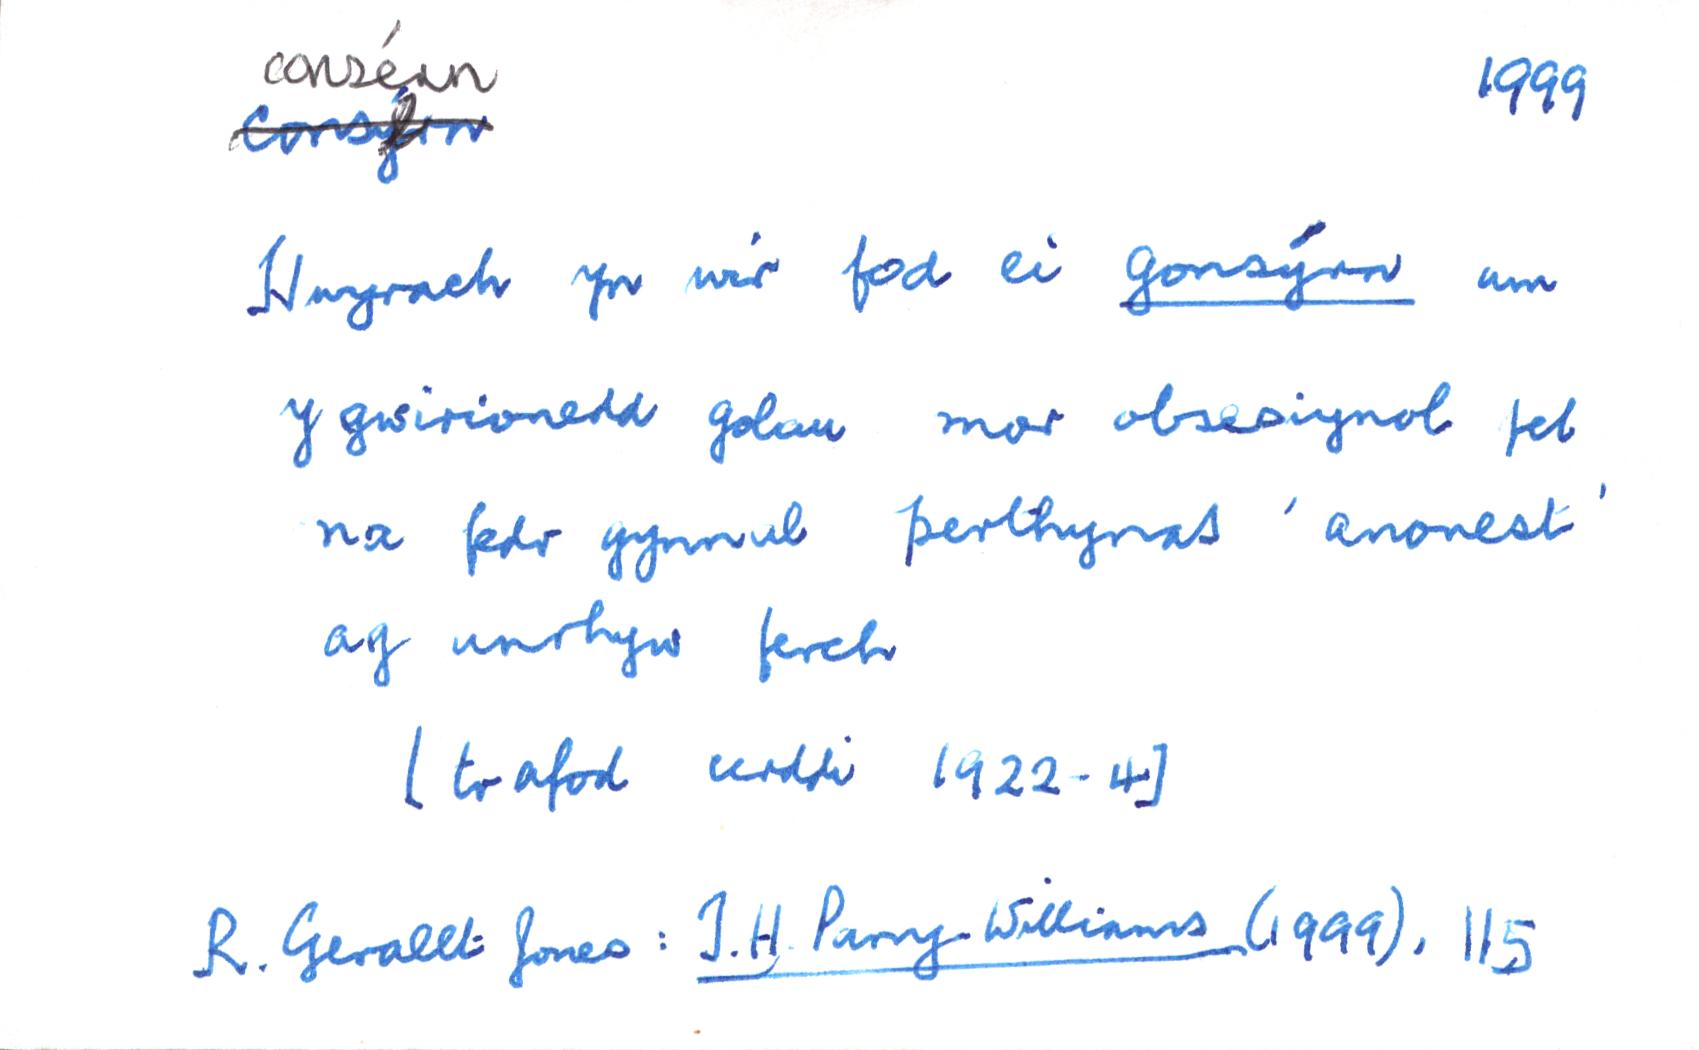 consérn
consýrn
1999
Hwyrach yn wir fod ei gonsýrn am
y gwirionedd golau mor obsesiynol fel
na fedr gynnal perthynas 'anonest'
ag unrhyw ferch
[trafod cerddi 1922-4]
R. Gerallt Jones: T.H. Parry-Williams (1999), 115